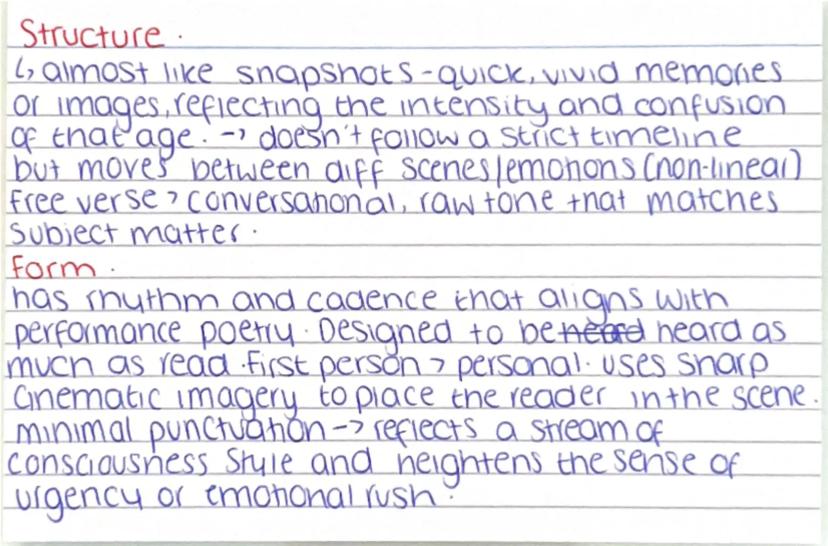 Structure.
↳ almost like snapshots - quick, vivid memories
or images, reflecting the intensity and confusion
of that age. -> doesn't follow a strict timeline
but moves between diff scenes/emotions (non-linear)
Free verse > conversational, raw tone that matches
subject matter.
Form.
has rhythm and cadence that aligns with
performance poetry. Designed to be heard heard as
much as read. first person > personal. uses sharp
cinematic imagery to place the reader in the scene.
minimal punctuation -> reflects a stream of
consciousness style and heightens the sense of
urgency or emotional rush.